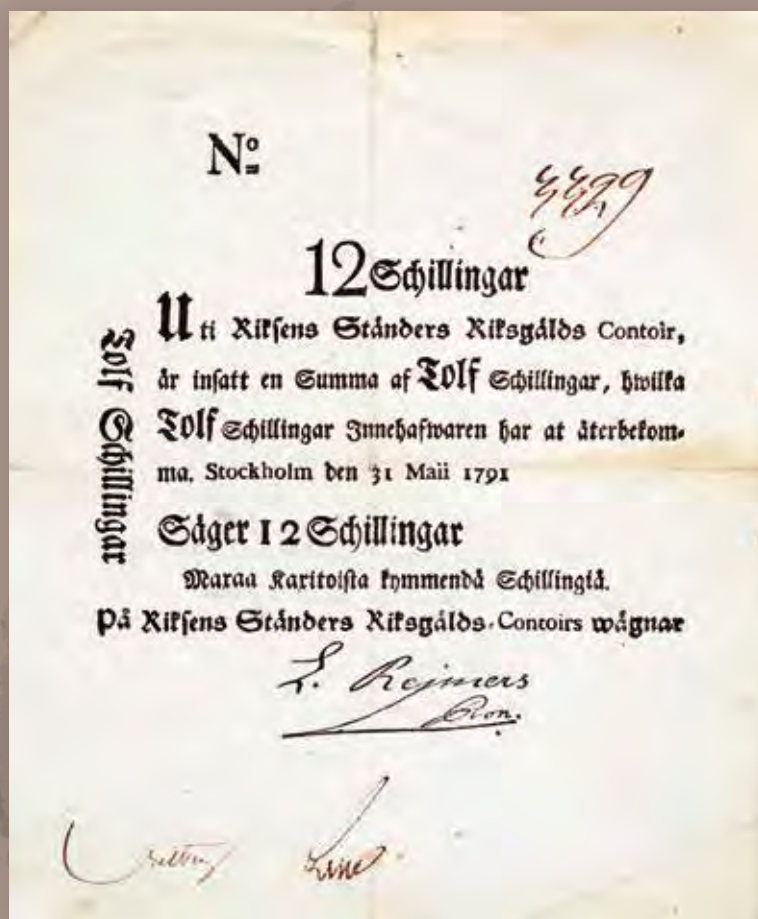 No:
12 Schillingar
Tolf Schillingar
Uti Riksens Ständers Riksgälds Contoir,
är insatt en Summa af Tolf Schillingar, hwilka
Tolf Schillingar Innehafwaren har at återbekom-
ma. Stockholm den 31 Maii 1791
Säger 12 Schillingar
Maxaa Kaxitoista kymmendä Schillingiä.
På Riksens Ständers Riksgälds-Contoirs wägnar
L. Rejmers